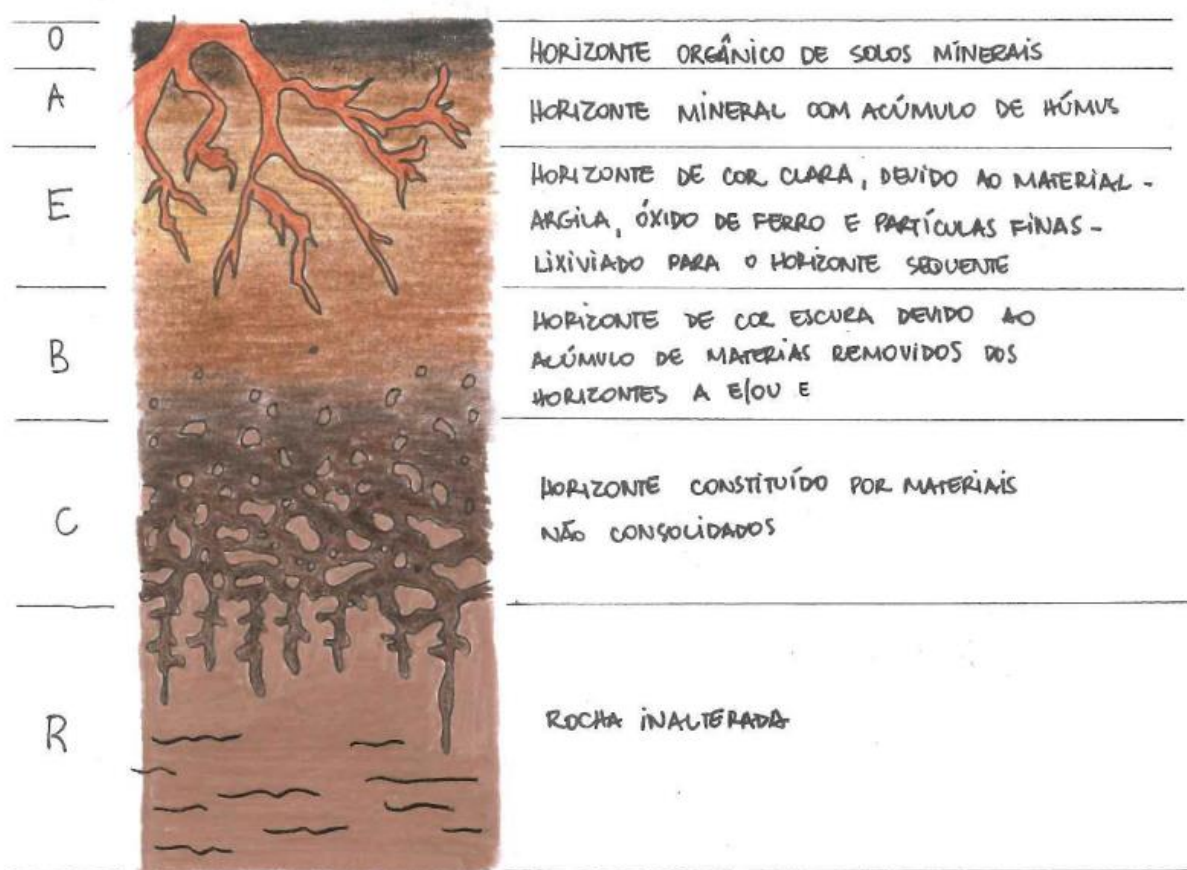 O
HORIZONTE ORGÂNICO DE SOLOS MINERAIS
A
HORIZONTE MINERAL COM ACÚMULO DE HÚMUS
E
HORIZONTE DE COR CLARA, DEVIDO AO MATERIAL -
ARGILA, ÓXIDO DE FERRO E PARTÍCULAS FINAS -
LIXIVIADO PARA O HORIZONTE SEQUENTE
B
HORIZONTE DE COR ESCURA DEVIDO AO
ACÚMULO DE MATERIAS REMOVIDOS DOS
HORIZONTES A E/OU E
C
HORIZONTE CONSTITUÍDO POR MATERIAIS
NÃO CONSOLIDADOS
R
ROCHA INALTERADA